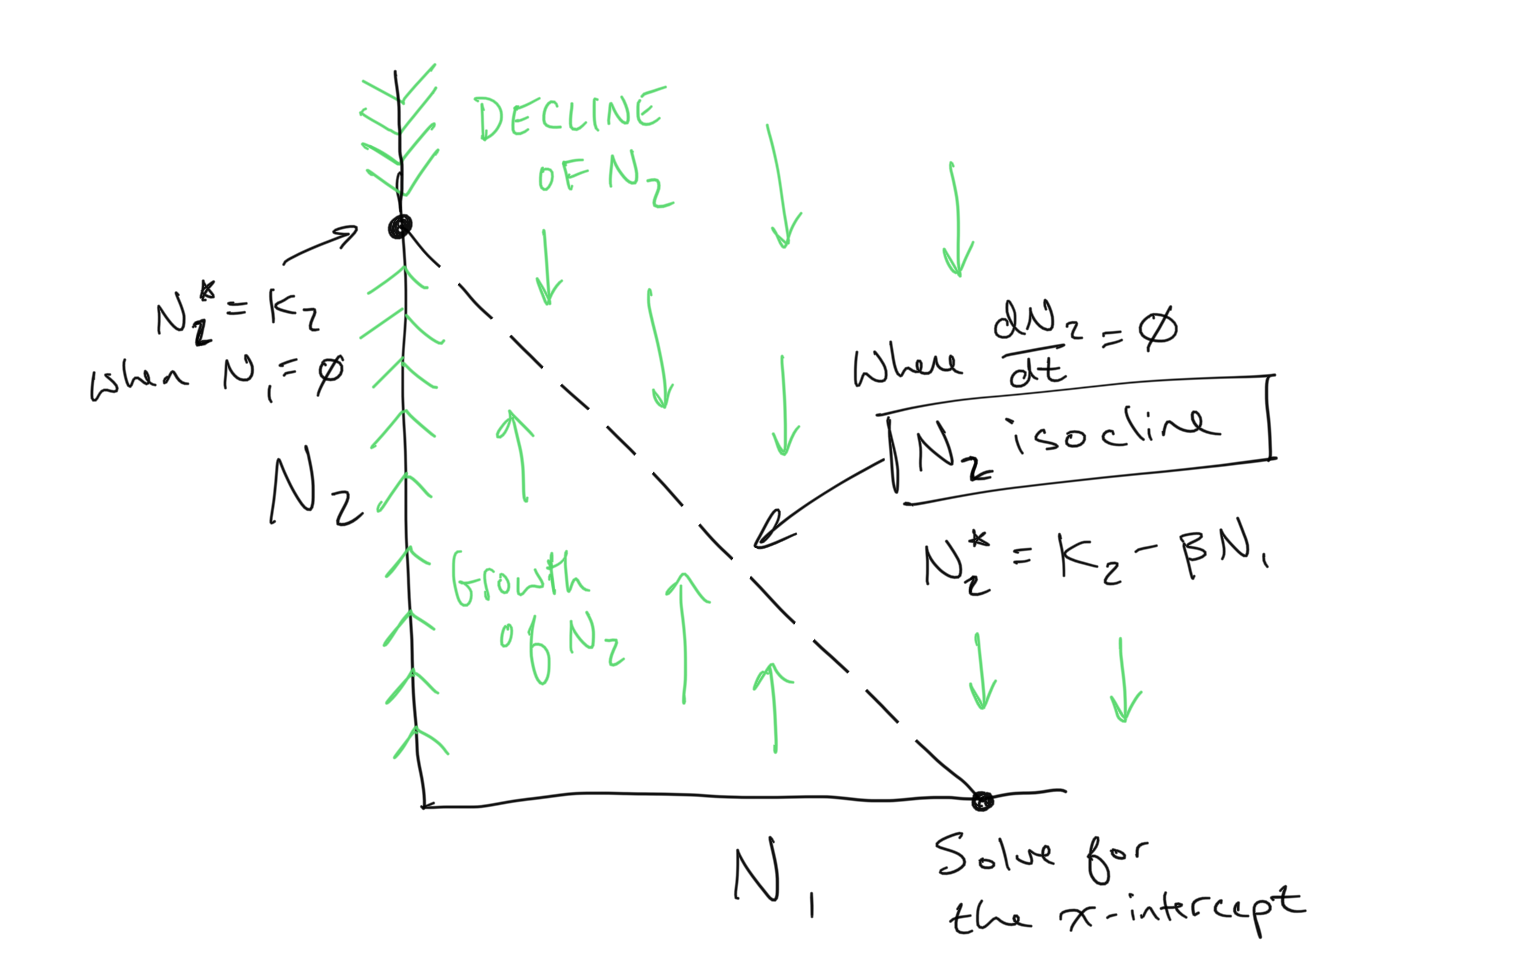 DECLINE
OF N₂
N₂* = K₂
when N₁ = ∅
where dN₂/dt = ∅
N₂ isocline
N₂* = K₂ - βN₁
N₂
Growth
of N₂
N₁
Solve for
the x-intercept